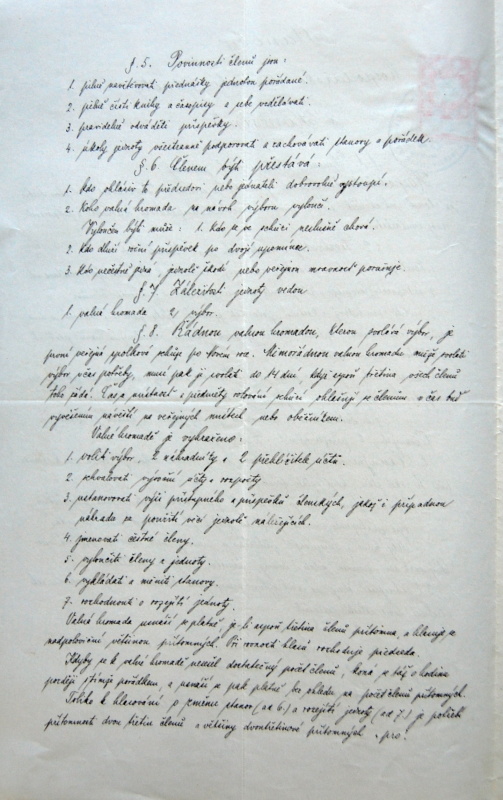 §. 5. Povinnosti členů jsou:
1. pilně navštěvovati přednášky jednotou pořádané.
2. pilně čísti knihy a časopisy a sebe vzdělávati.
3. pravidelně odváděti příspěvky.
4. účely jednoty všestranně podporovati a zachovávati stanovy a pořádek.
§. 6. Členem býti přestává:
1. kdo ohlásiv to předsedovi nebo jednateli dobrovolně vystoupí.
2. Koho valná hromada na návrh výboru vyloučí.
Vyloučen býti může: 1. Kdo se ve schůzi neslušně chová.
2. Kdo dluží roční příspěvek po dvojí upomínce.
3. Kdo nečestně jedná, jednotě škodí nebo veřejnou mravnost porušuje.
§. 7. Záležitosti jednoty vedou
1. valná hromada 2) výbor.
§. 8. Řádnou valnou hromadou, kterou svolává výbor, je
první veřejná spolková schůze po Novém roce. Mimořádnou valnou hromadu může svolati
výbor v čas potřeby, musí pak ji svolati do 14 dní, když aspoň třetina všech členů
toho žádá. Čas a místnost a předměty rokování schůzí ohlašují se členům v čas buď
vyvěšením návěští na veřejných místech nebo oběžníkem.
Valné hromadě je vyhrazeno:
1. voliti výbor, 2 náhradníky a 2 přehlížitele účtů.
2. schvalovati výroční účty a rozpočty
3. ustanovovati výši přístupného a příspěvků členských, jakož i případnou
náhradu za použití věcí jednotě náležejících.
4. jmenovati čestné členy.
5. vyloučiti členy z jednoty.
6. vykládati a měniti stanovy.
7. rozhodnouti o rozejití jednoty.
Valná hromada usnáší se platně, je-li aspoň třetina členů přítomna, a hlasuje se
nadpoloviční většinou přítomných. Při rovnosti hlasů rozhoduje předseda.
Kdyby se k valné hromadě nesešel dostatečný počet členů, koná se táž o hodinu
později s týmže pořádkem a usnáší se pak platně bez ohledu na počet členů přítomných.
Toliko k hlasování o změnu stanov (ad 6.) a rozejití jednoty (ad 7.) je potřebí
přítomnosti dvou třetin členů a většiny dvoutřetinové přítomných "pro".